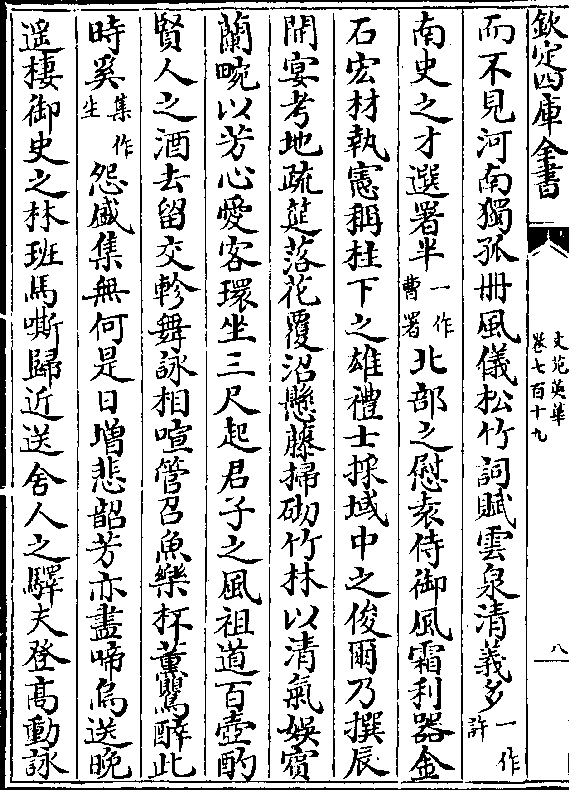 欽定四庫全書
文苑英華
卷七百十九
八
而不見河南獨孤冊風儀松竹詞賦雲泉清義多一作許
南史之才選署半一作曹署北部之慰袁侍御風霜利器金
石宏材執憲稱柱下之雄禮士採域中之俊爾乃撰辰
開宴考地疏筵落花覆沼懸藤掃砌竹林以清氣娛賓
蘭畹以芳心愛客環坐三尺起君子之風祖道百壺酌
賢人之酒去留交軫舞詠相喧管召魚樂杯薰鸎醉此
時奚集作坐怨盛集無何是日增悲韶芳亦盡啼烏送晚
遥棲御史之林班馬嘶歸近送舍人之驛夫登高動詠